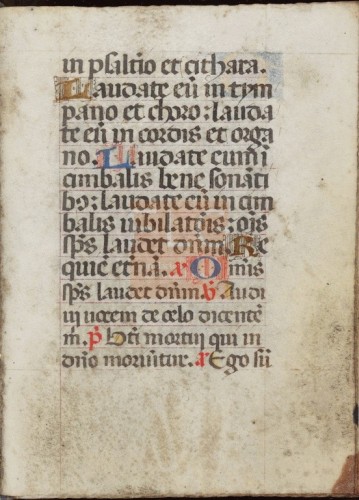 in psaltio et cithara.
Laudate eū in tym
pano et choro: lauda
te eū in cordis et orga
no. Laudate eum ī
cimbalis bene sonāti
bꝰ: laudate eū in cim
balis iubilatōis: oīs
sp̄s laudet dn̄m. Re
quiē etnā. a Omīs
sp̄s laudet dn̄m. v Audi
ui uocem de celo dicentē
m. p Bti mortui qui in
dn̄o moriūtur. a Ego sū